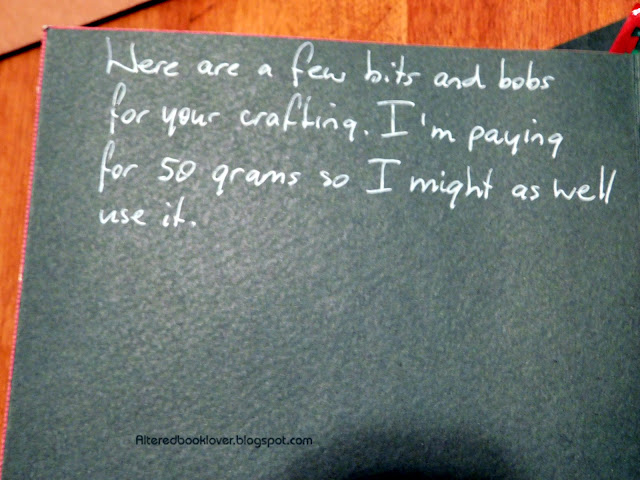 Here are a few bits and bobs
for your crafting. I'm paying
for 50 grams so I might as well
use it.
Alteredbooklover.blogspot.com